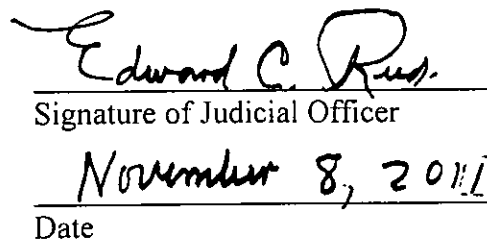 Edward C. Reed.
Signature of Judicial Officer
November 8, 2011
Date